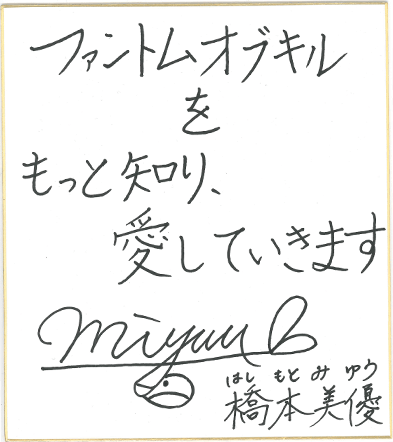 ファントムオブキル
を
もっと知り、
愛していきます
miyuu
はしもとみゆう
橋本美優